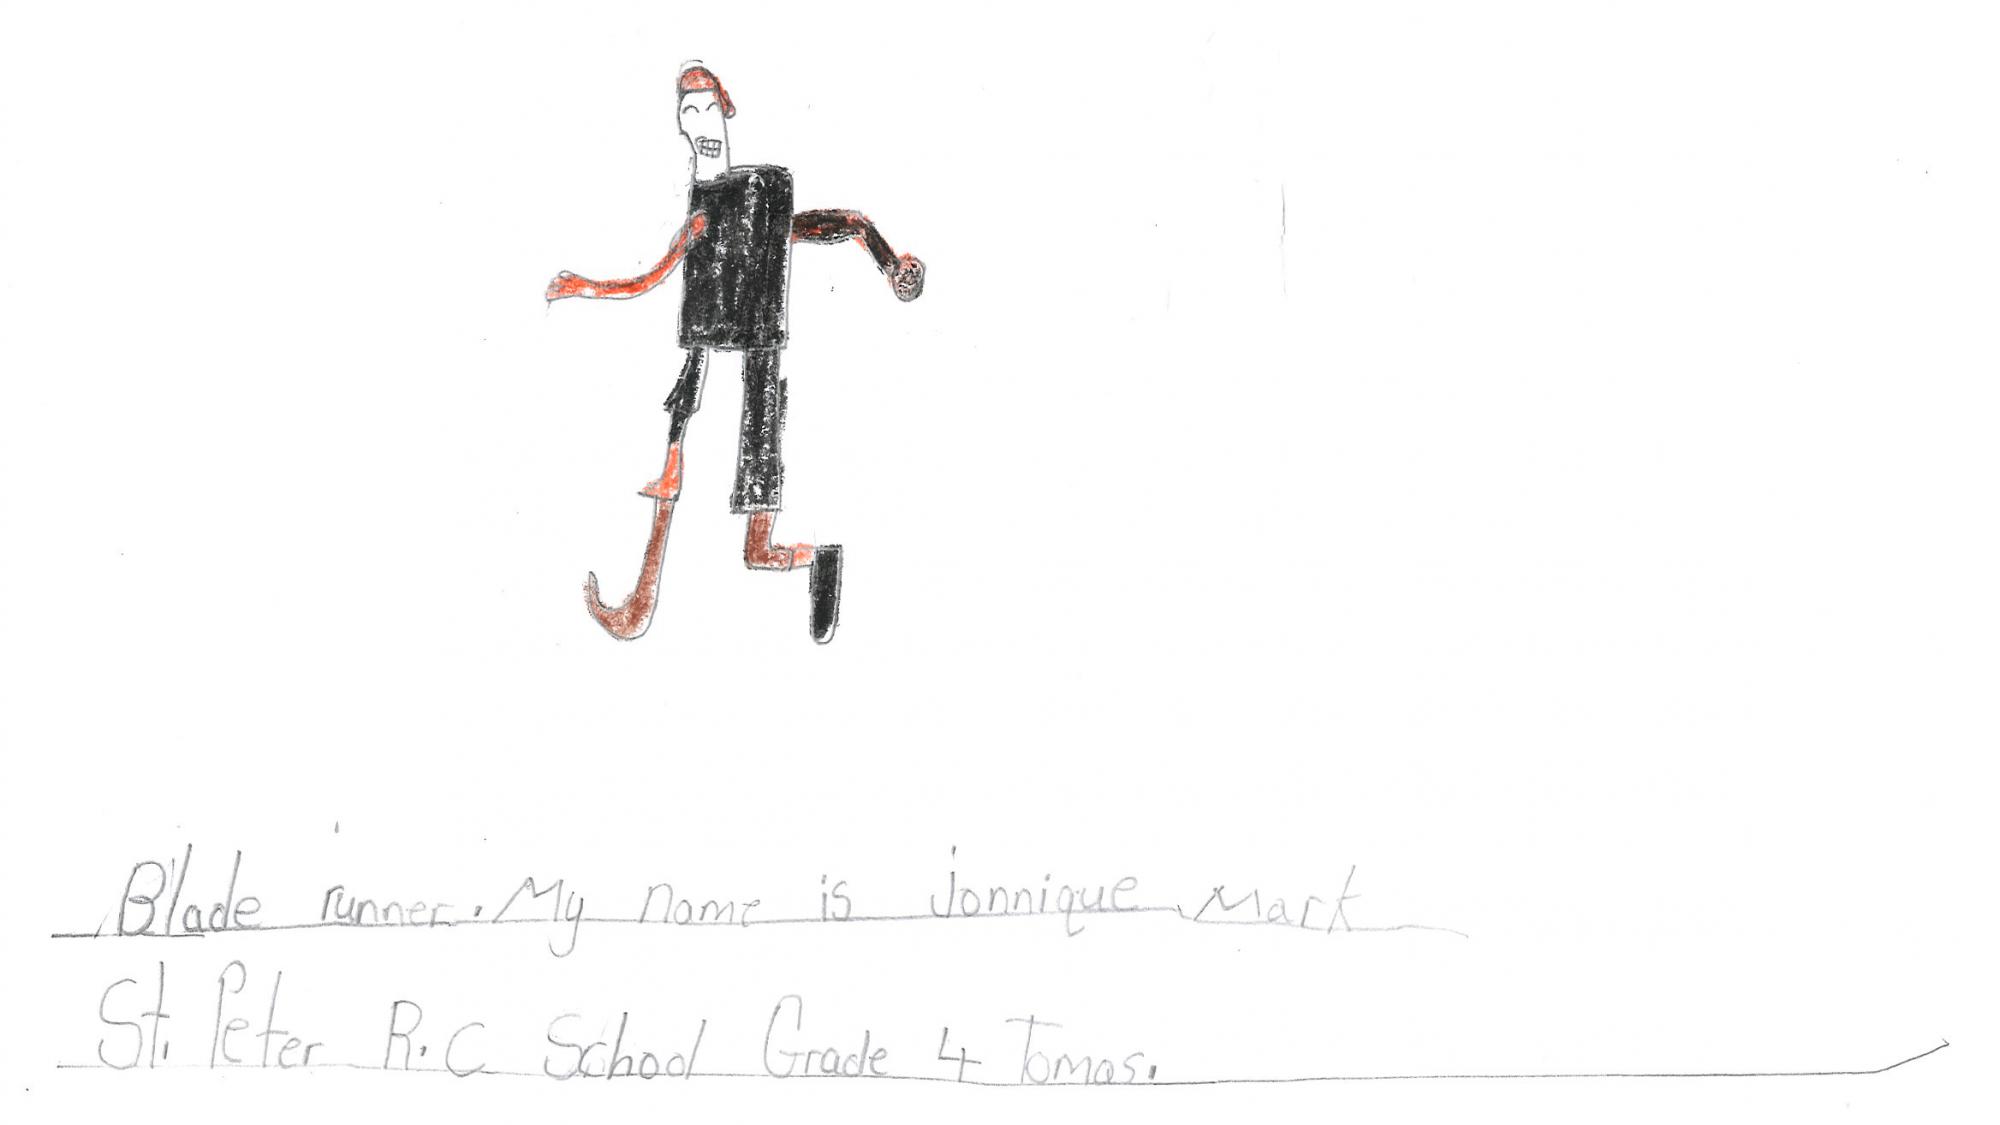 Blade runner. My name is Jonnique Mark
St. Peter R.C School Grade 4 Tomas.